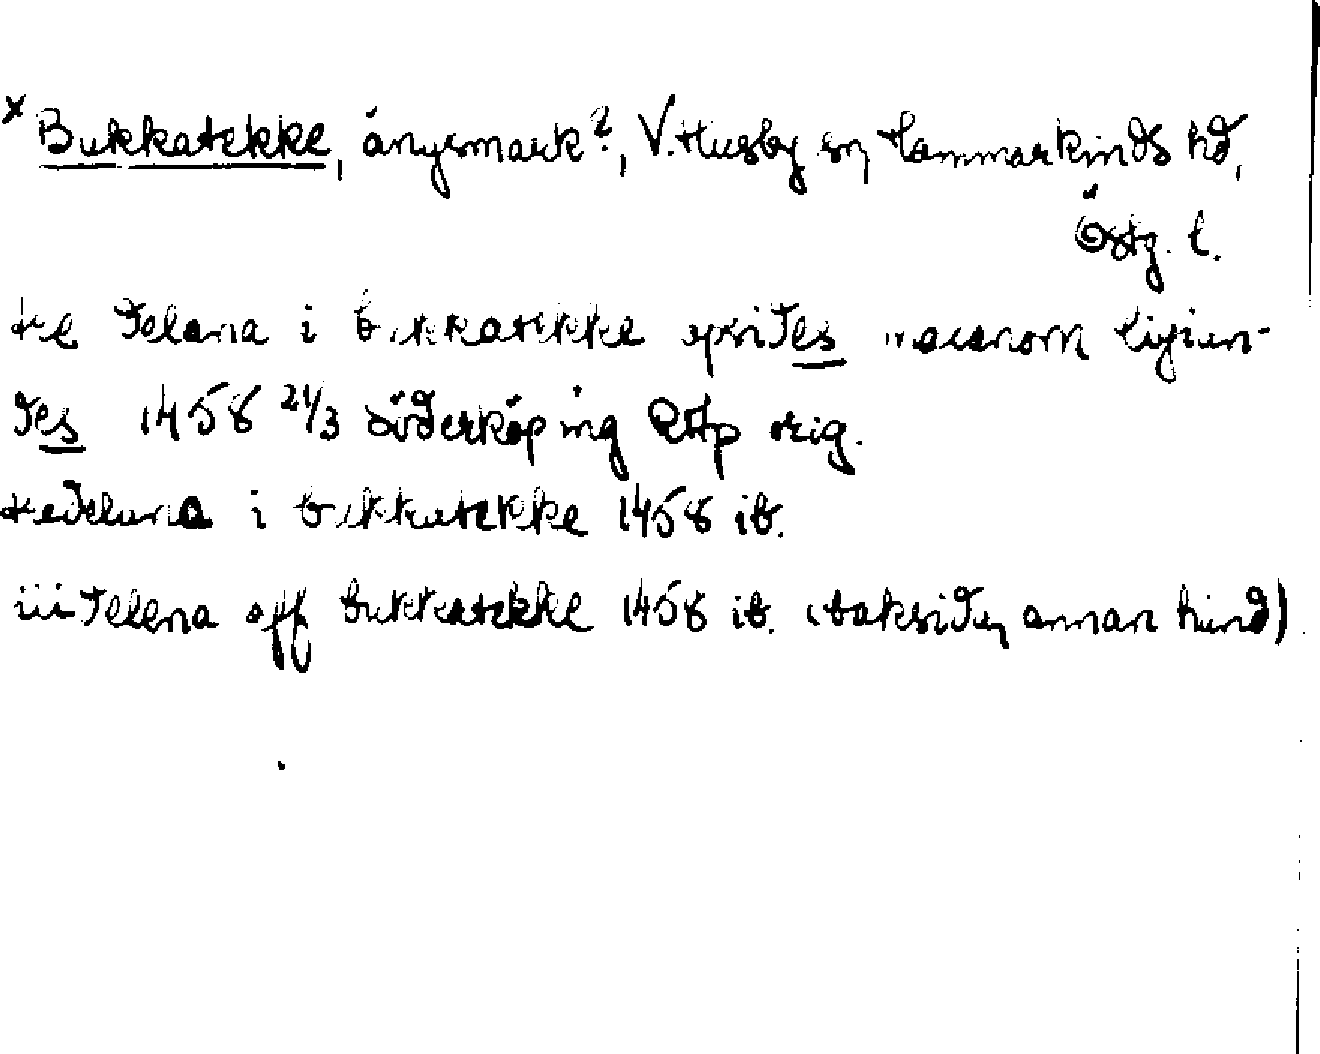 x Bukkatekke, ängsmark?, V. Husby sn, Hammarkinds hd,
Östg. l.
tre delana i bukkatekke liggian-
des 1458 21/3 Söderköping RAp orig.
tredeluna i bukkatekke 1458 ib.
iii delena aff bukkatekke 1458 ib. (baksidan, annan hand)